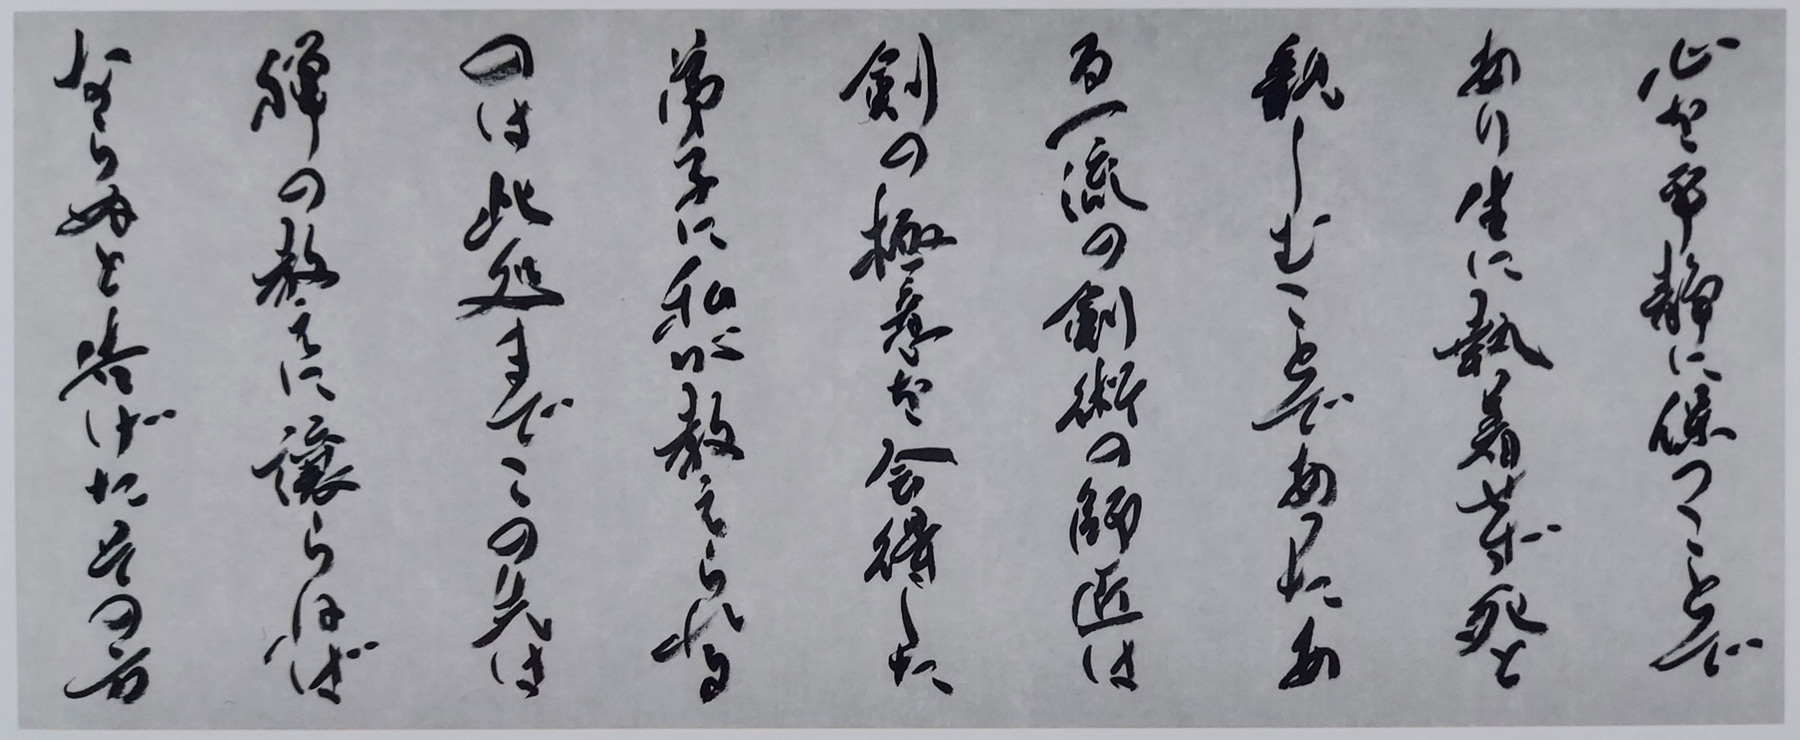 心を平静に保つことで
あり生に執着せず死と
親しむことであつたあ
る一流の劍術の師匠は
劍の極意を会得した
弟子に私が教えられる
のは此処までこの先は
禅の教えに譲らねば
ならぬと告げたその前